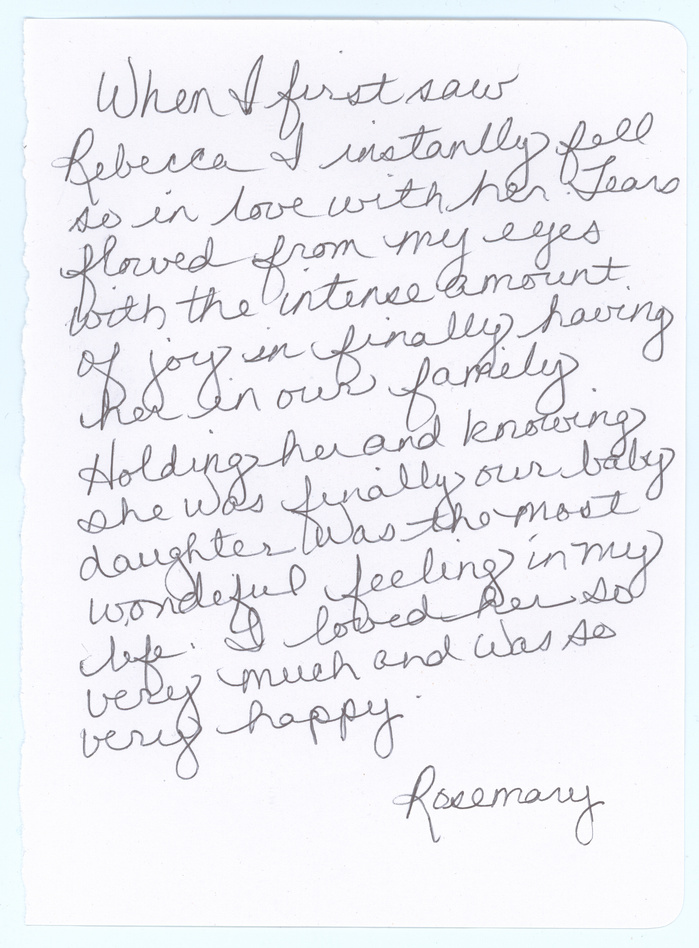 When I first saw
Rebecca I instantly fell
so in love with her. Tears
flowed from my eyes
with the intense amount
of joy in finally having
her in our family
Holding her and knowing
she was finally our baby
daughter was the most
wonderful feeling in my
life. I loved her so
very much and was so
very happy.
Rosemary